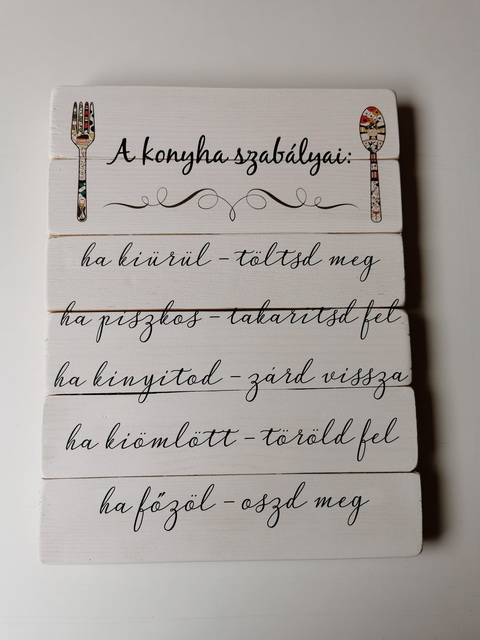 A konyha szabályai:
ha kiürül - töltsd meg
ha piszkos - takarítsd fel
ha kinyitod - zárd vissza
ha kiömlött - töröld fel
ha főzöl - oszd meg